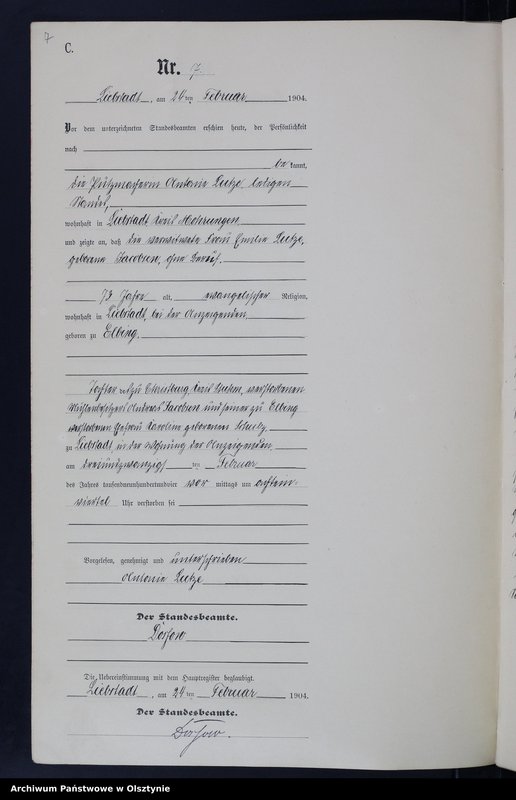 7
C.
Nr. 7.
Liebstadt, am 24 ten Februar 1904.
Vor dem unterzeichneten Standesbeamten erschien heute, der Persönlichkeit
nach
bekannt,
die Putzmacherin Antonie Lietze, ledigen
Standes,
wohnhaft in Liebstadt Kreis Mohrungen
und zeigte an, daß die verwitwete Frau Emilie Lietze,
geborene Jacobsen, ohne Beruf,
73 Jahre alt, evangelischer Religion,
wohnhaft in Liebstadt, bei der Anzeigenden,
geboren zu Elbing,
Tochter des zu Kreis verstorbenen
Mühlenbesitzers Andreas Jacobsen und seiner zu Elbing
verstorbenen Ehefrau Caroline geborenen Schulz,
zu Liebstadt, in der Wohnung der Anzeigenden,
am dreiundzwanzigsten Februar
des Jahres tausendneunhundertundvier vor mittags um achteinviertel
Uhr verstorben sei
Vorgelesen, genehmigt und unterschrieben
Antonie Lietze
Der Standesbeamte.
Die Uebereinstimmung mit dem Hauptregister beglaubigt.
Liebstadt, am 24 ten Februar 1904.
Der Standesbeamte.
Archiwum Państwowe w Olsztynie